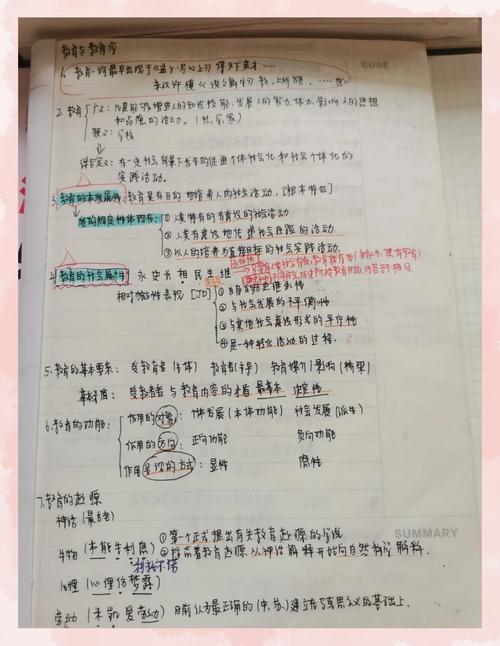 教育与教育学
1. 教育一词最早出现于《孟子·尽心上》得天下英才……
《说文解字》教,上所施,……
2. 教育 广义:凡是能够增进人的知识技能、发展人的智力、体力、影响人的思想
和品德的活动。(社、学、家)
狭义:学校
CUSE
在一定社会背景下发生的促进个体社会化和社会个体化的
实践活动。
3. 教育的本质属性:教育是有目的地培养人的社会活动。[根本特征]
质的规定性体现在:①人类特有的有意识的社会活动
②人类有意识地传递社会经验的活动
③以人的培养为直接目标的社会实践活动
4. 教育的社会属性 永 史 相 民 生 继
相对独立性表现 [JD] ①自身的历史继承性
②与社会发展的不平衡性
③与其他社会意识形式的平行性
④是一种转化活动的过程
5. 教育的基本要素: 受教育者(主体) 教育者(主导) 教育媒介/影响(桥梁)
基本矛盾: 受教育者与教育内容的矛盾 最基本 决定性
6. 教育的功能: 作用的对象: 个体发展(本体功能) 社会发展(派生)
作用的方向: 正向功能 负向功能
作用呈现的方式: 显性 隐性
7. 教育的起源
神话(最古老)
生物(本能生利息) ①第一个正式提出有关教育起源的学说
②标志着教育起源从神话解释开始向自然科学解释.
利托不沛
SUMMARY
心理(心理仿孟禄)
劳动(米凯爱劳动) 目前认为最正确的(中,苏)建立在马克思主义的基础上.